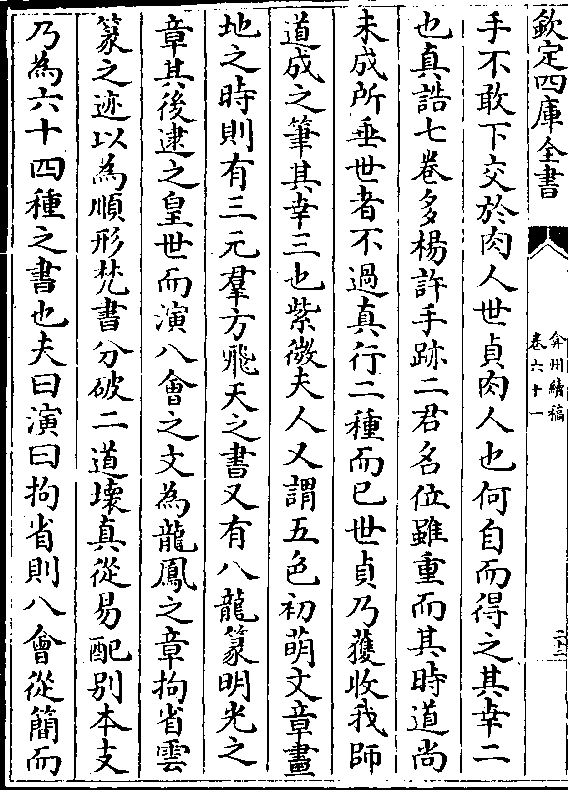 欽定四庫全書
弇州續稿
卷六十一
手不敢下交於肉人世貞肉人也何自而得之其幸二
也真誥七卷多楊許手跡二君名位雖重而其時道尚
未成所垂世者不過真行二種而已世貞乃獲收我師
道成之筆其幸三也紫微夫人又謂五色初萌文章畫
地之時則有三元羣方飛天之書又有八龍篆明光之
章其後逮之皇世而演八會之文為龍鳳之章拘省雲
篆之迹以為順形梵書分破二道壞真從易配别本支
乃為六十四種之書也夫曰演曰拘省則八會從簡而